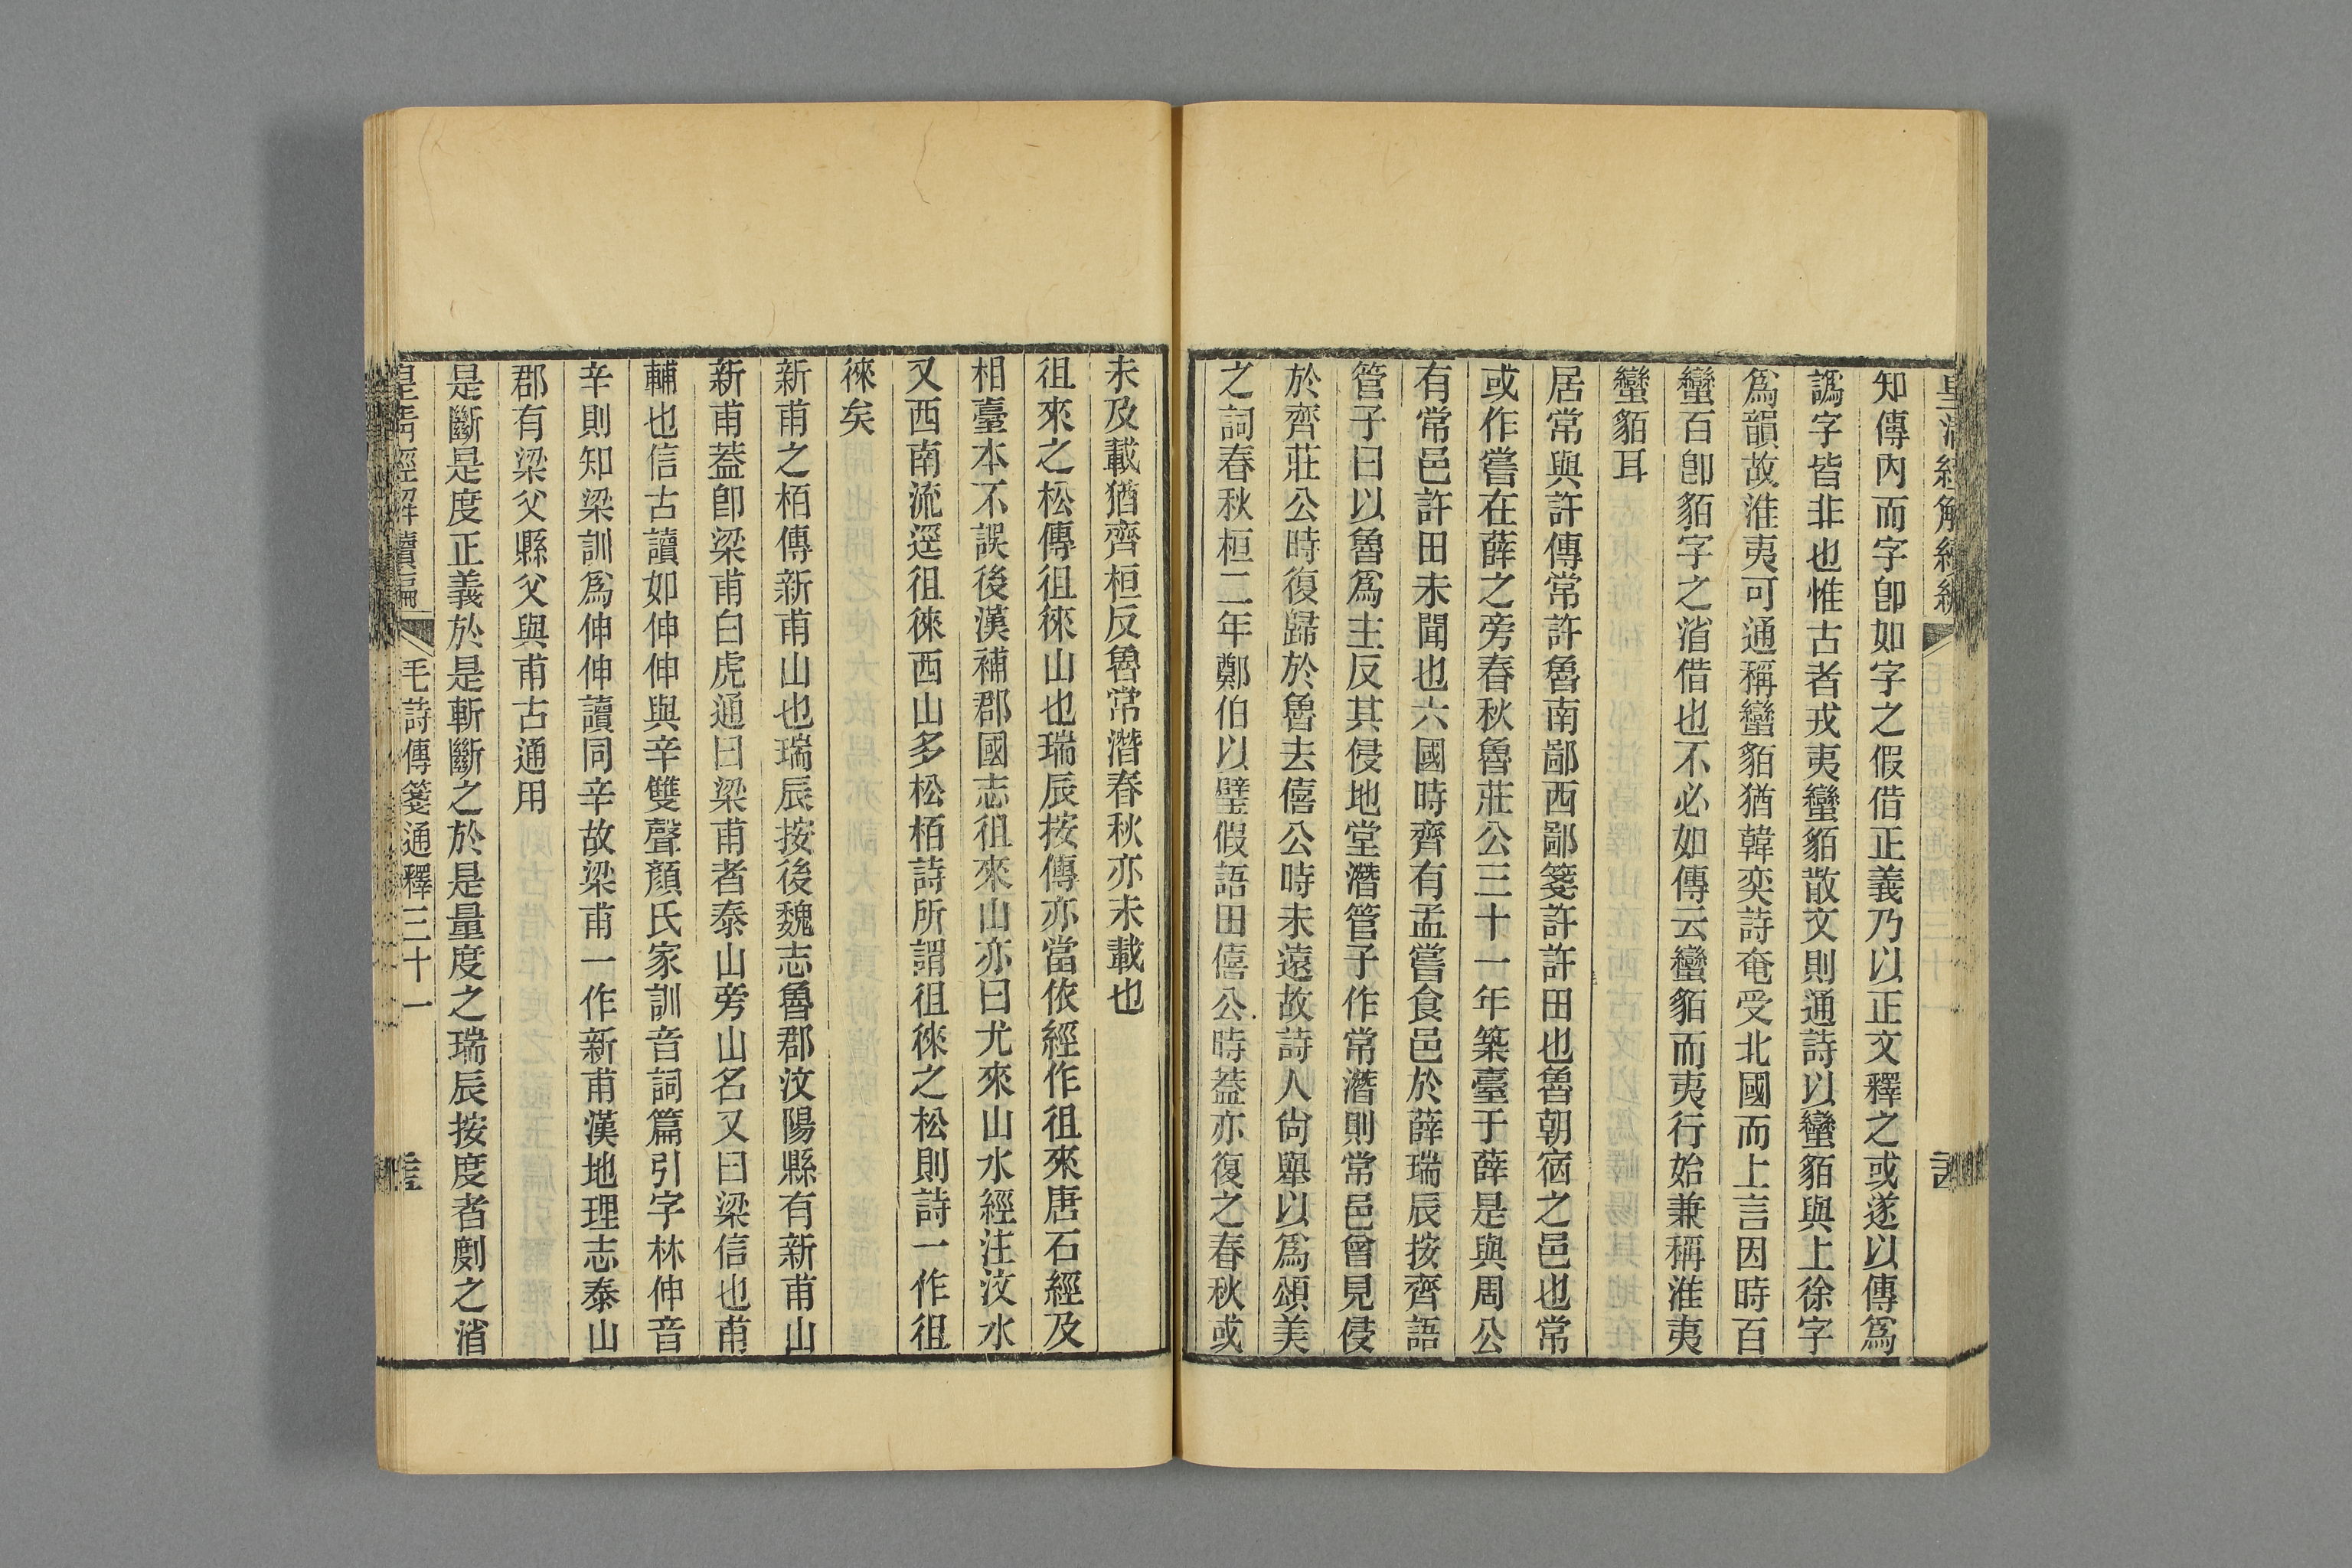 知傳內而字卽如字之假借正義乃以正文釋之或遂以傳爲
譌字皆非也惟古者戎夷蠻貊散文則通詩以蠻貊與上徐字
爲韻故淮夷可通稱蠻貊猶韓奕詩奄受北國而上言因時百
蠻百卽貊字之消借也不必如傳云蠻貊而夷行始兼稱淮夷
蠻貊耳
居常與許傳常許魯南鄙西鄙箋許許田也魯朝宿之邑也常
或作嘗在薛之旁春秋魯莊公三十一年築臺于薛是與周公
有常邑許田未聞也六國時齊有孟嘗食邑於薛瑞辰按齊語
管子曰以魯爲主反其侵地堂潛管子作常潛則常邑曾見侵
於齊莊公時復歸於魯去僖公時未遠故詩人尙舉以爲頌美
之詞春秋桓二年鄭伯以璧假語田僖公時葢亦復之春秋或
未及載猶齊桓反魯常潛春秋亦未載也
徂來之松傳徂徠山也瑞辰按傳亦當依經作徂來唐石經及
相臺本不誤後漢補郡國志徂來山亦曰尤來山水經注汶水
又西南流逕徂徠西山多松栢詩所謂徂徠之松則詩一作徂
徠矣
新甫之栢傳新甫山也瑞辰按後魏志魯郡汶陽縣有新甫山
新甫葢卽梁甫白虎通曰梁甫者泰山旁山名又曰梁信也甫
輔也信古讀如伸伸與辛雙聲顏氏家訓音詞篇引字林伸音
辛則知梁訓爲伸伸讀同辛故梁甫一作新甫漢地理志泰山
郡有梁父縣父與甫古通用
是斷是度正義於是斬斷之於是量度之瑞辰按度者剫之消
皇淸經解續編
毛詩傳箋通釋三十一